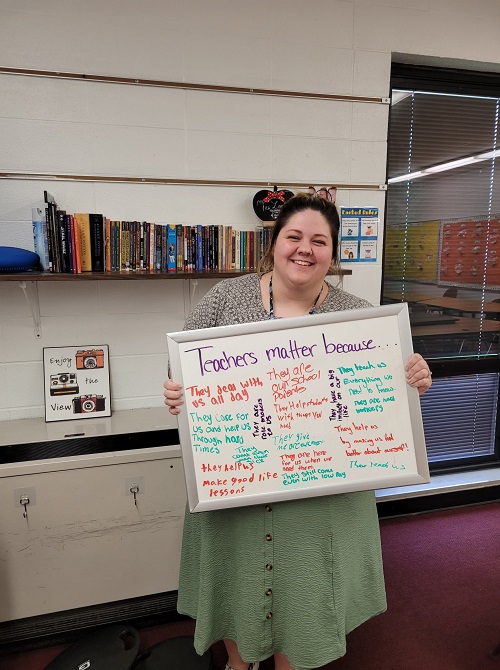 Enjoy
the
View
Teachers matter because....
They deal with
us all day
They care for
us and help us
Through hard
Times
they help us
make good life
lessons
They are
role models
to us
They
come even
They are
our school
parents
They Help students
with things they
need
They give
They are here
for us when we
need them
They still come
even with low pay
They have a big
impact on our
life
They teach us
Everything we
need to know
They are hard
workers
They help us
by making us feel
better about ourself!!
They teach us